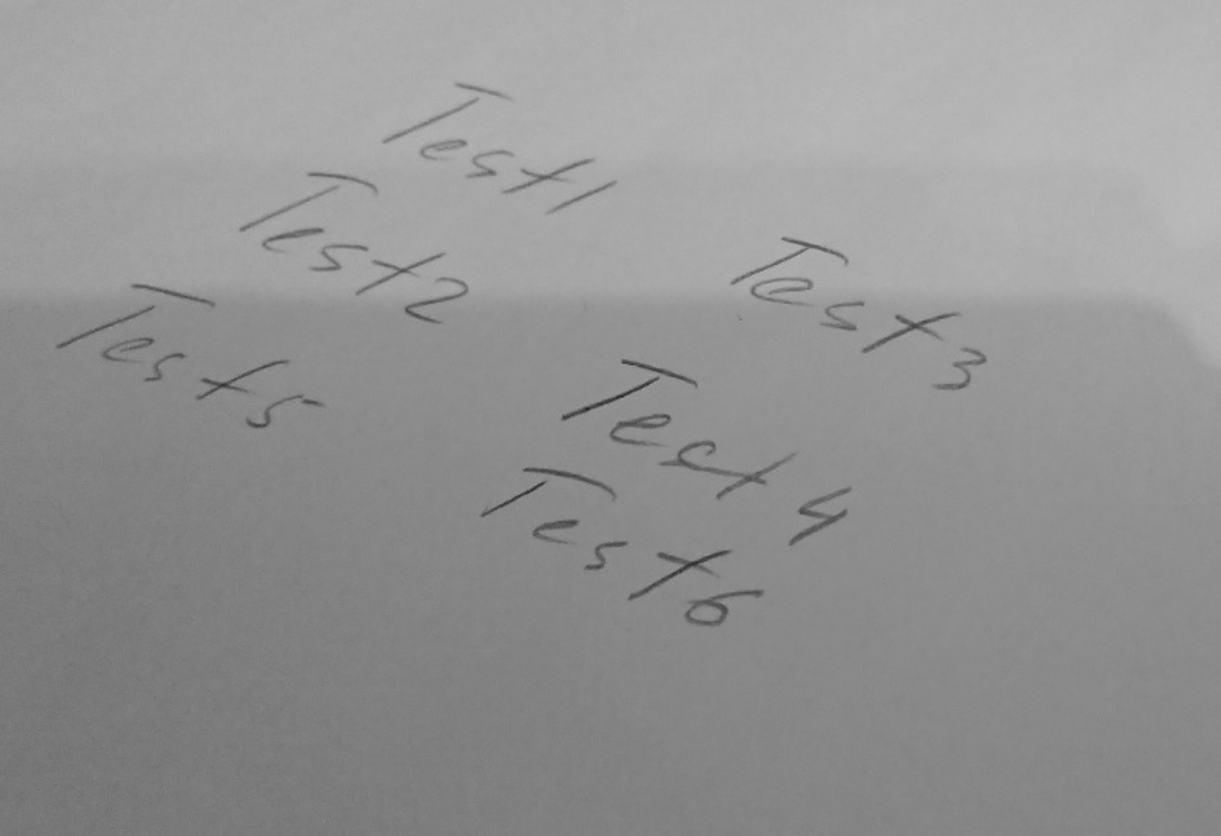 Test1
Test2
Test3
Test5
Test4
Test6